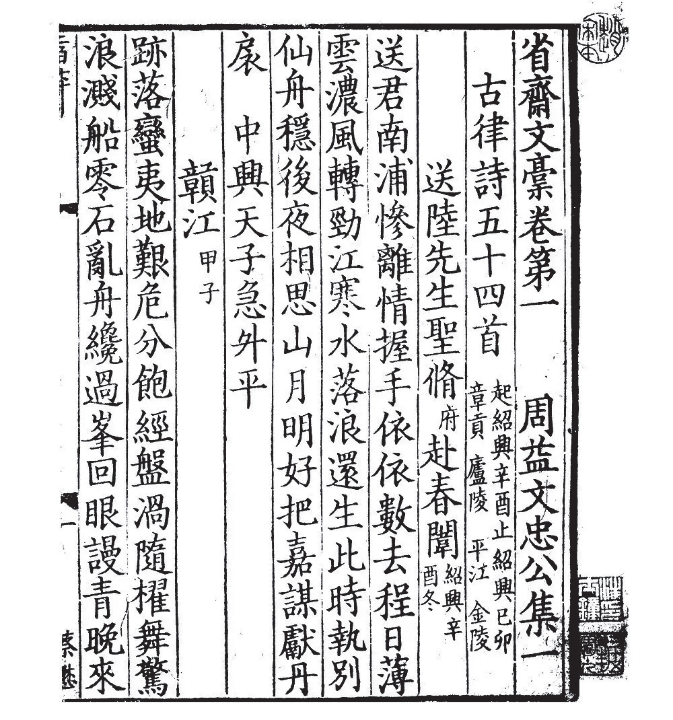 省齋文稾卷第一　周益文忠公集一
古律詩五十四首 起紹興辛酉止紹興己卯 章貢 廬陵 平江 金陵
送陸先生聖脩府赴春闈 紹興辛酉冬
送君南浦慘離情握手依依數去程日薄
雲濃風轉勁江寒水落浪還生此時執別
仙舟穩後夜相思山月明好把嘉謀獻丹
扆　中興天子急升平
贛江 甲子
跡落蠻夷地艱危分飽經盤渦隨櫂舞驚
浪濺船零石亂舟纔過峯回眼謾青晚來